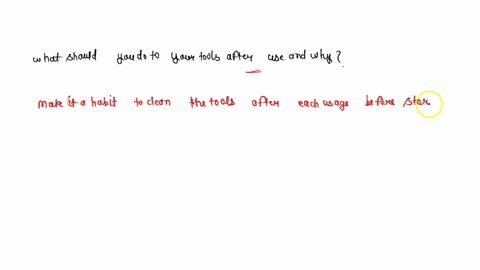 what should you do to your tools after use and why?
make it a habit to clean the tools after each usage before stor